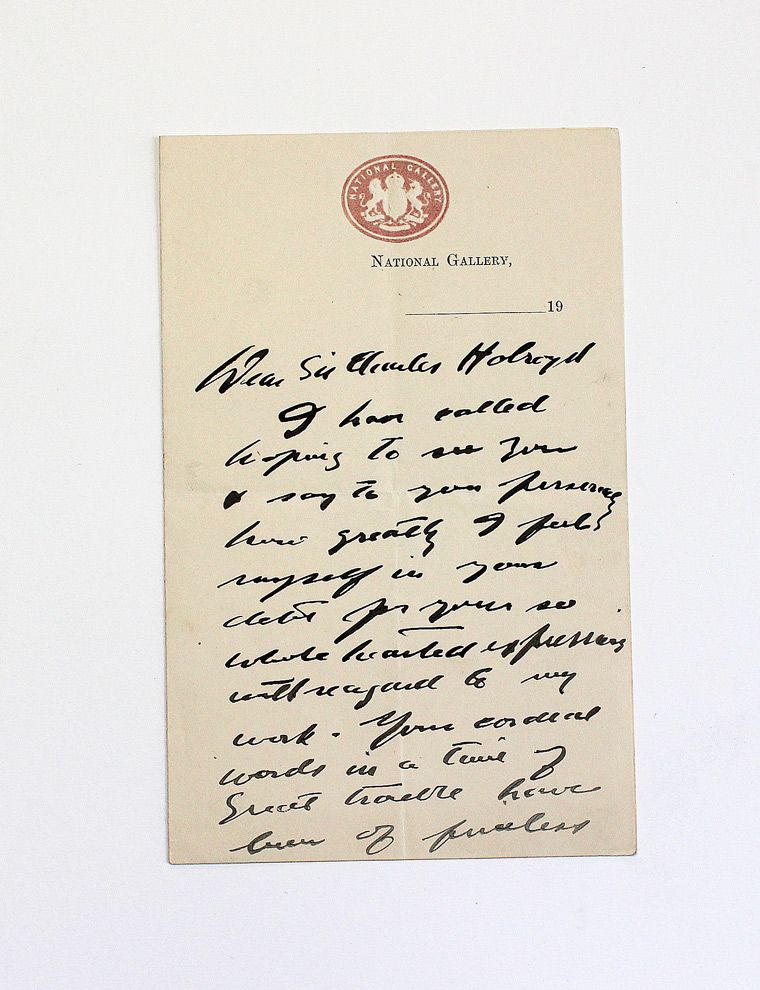 NATIONAL GALLERY
NATIONAL GALLERY,
19
Dear Sir Charles Holroyd
I have called
hoping to see you
& say to you personally
how greatly I feel
myself in your
debt for your so
whole hearted expressions
with regard to my
work. Your cordial
words in a time of
great trouble have
been of priceless